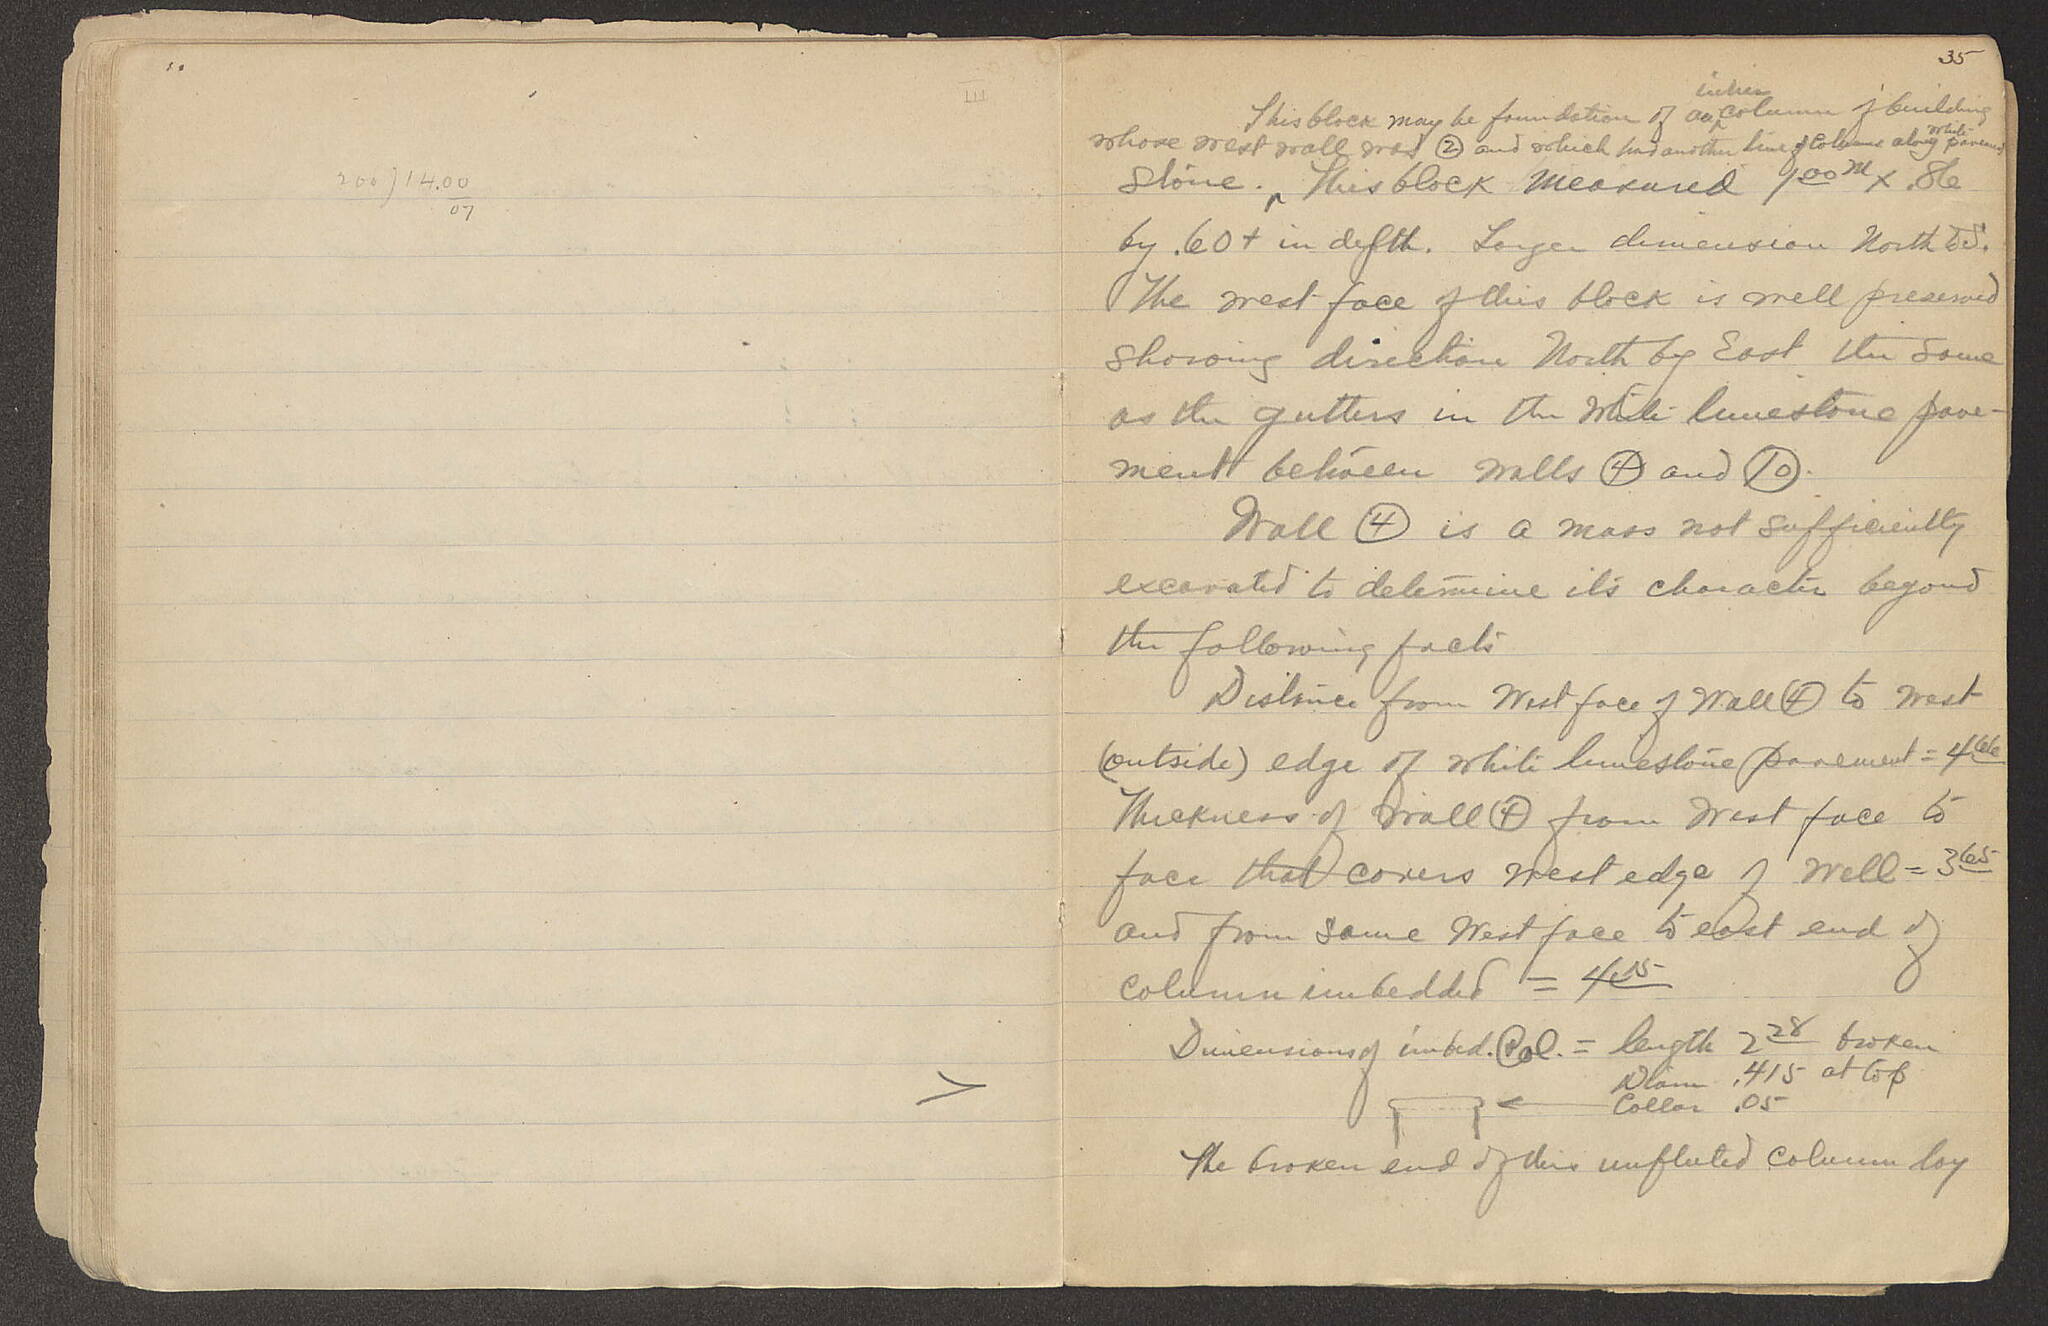 200 ) 14.00
07
>
35
inner
This block may be foundation of an column of building
white
whose west wall was ② and which had another line of columns along pavement
stone. ‸ This block measured 1.00 m x .86
by .60+ in depth. Larger dimension North to S.
The west face of this block is well preserved
showing direction North by East the same
as the gutters in the white limestone pave-
ment between walls ④ and ⑩.
Wall ④ is a mass not sufficiently
excavated to determine its character beyond
the following facts
Distance from West face of Wall ④ to west
(outside) edge of white limestone pavement = 4.66
Thickness of wall ④ from West face to
face that covers west edge of Well = 3.65
and from same West face to east end of
column imbedded = 4.15
Dimensions of imbed. Col. = length 2.28 broken
Diam .415 at top
Collar .05
The broken end of this unfluted column lay